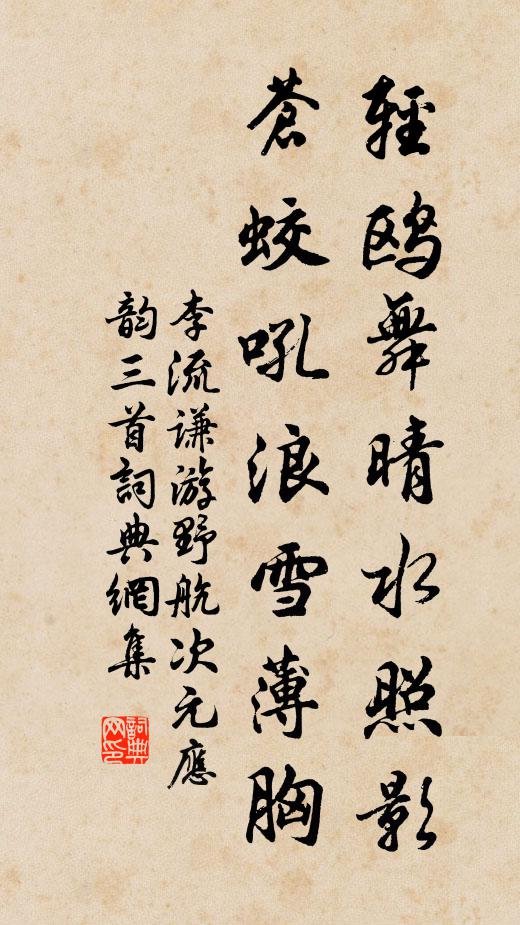 輕鸥舞晴水照影
蒼蛟吼浪雪薄胸
李流谦游野航次元應
韵三首詞典網集
詞典網印